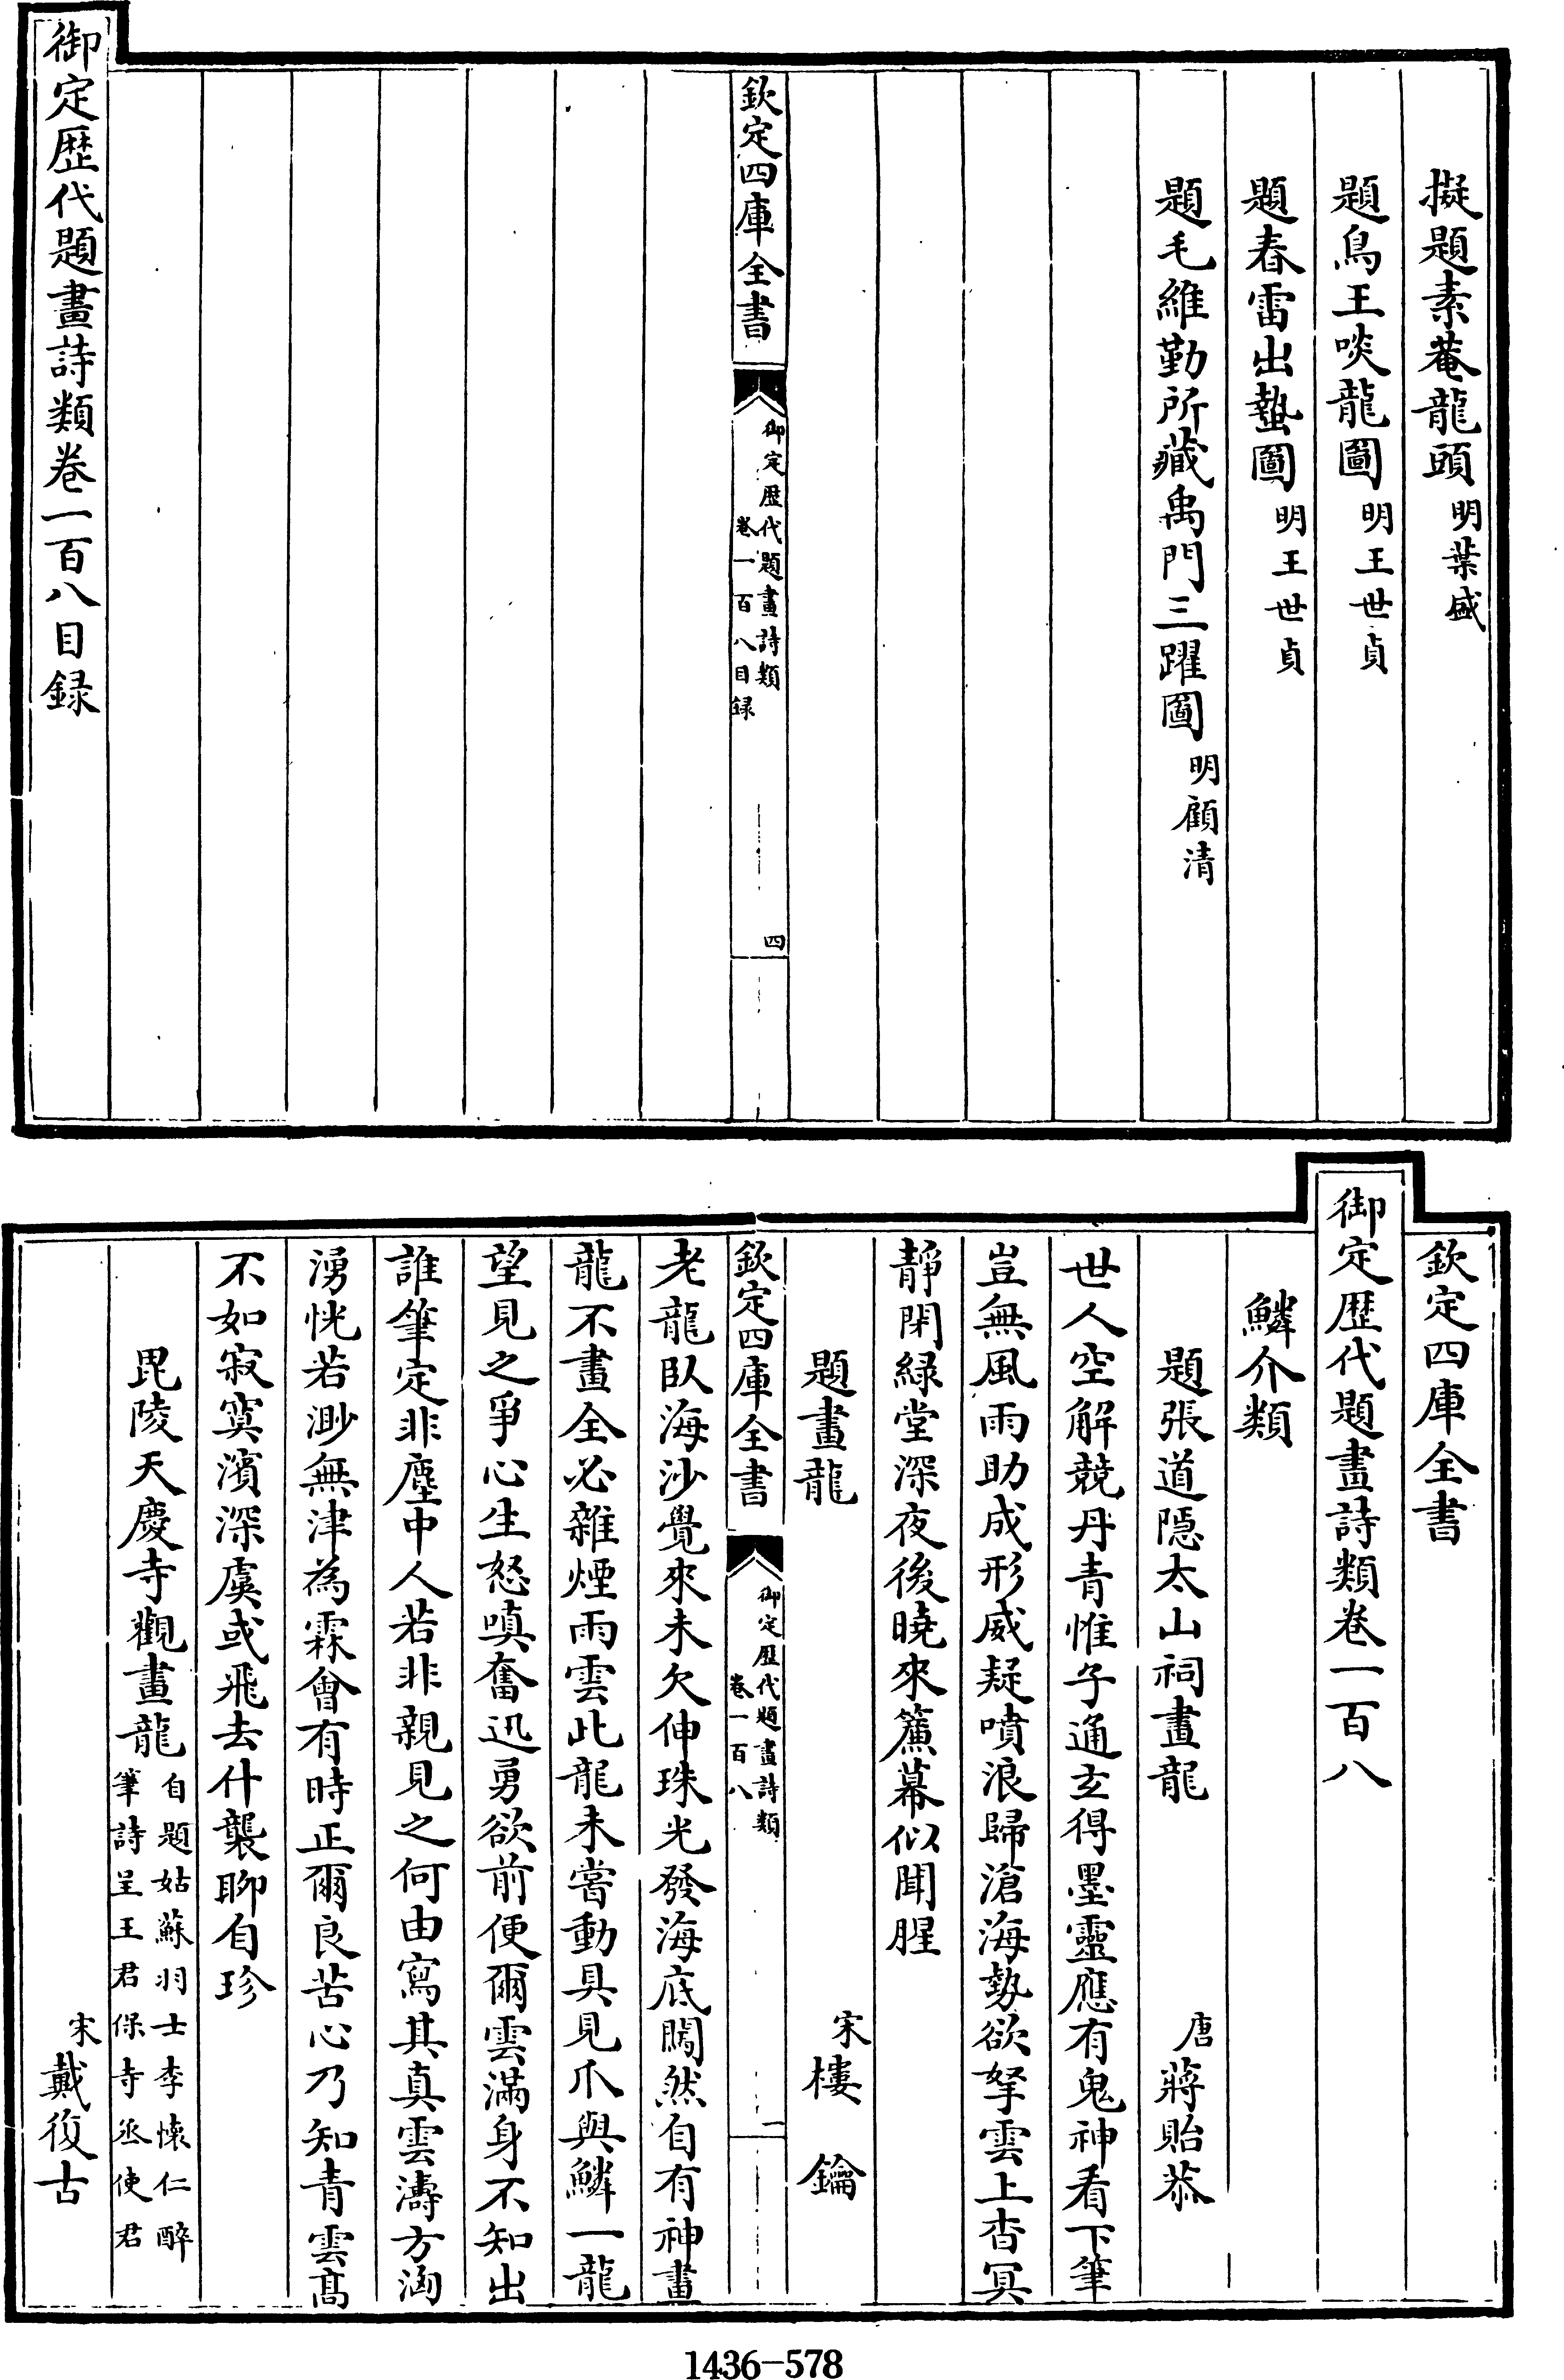 擬題素菴龍頭明葉盛
題鳥王啖龍圖明王世貞
題春雷出蟄圖明王世貞
題毛維勤所藏禹門三躍圖明顧清
欽定四庫全書
御定歴代題畫詩類
卷一百八目録
四
御定歴代題畫詩類卷一百八目録
欽定四庫全書
御定歴代題畫詩類卷一百八
鱗介類
題張道隱太山祠畫龍
唐蔣貽恭
世人空解競丹青惟子通玄得墨靈應有鬼神看下筆
豈無風雨助成形威疑噴浪歸滄海勢欲拏雲上杳冥
靜閉緑堂深夜後曉來簾幕似聞腥
題畫龍
宋樓鑰
欽定四庫全書
御定歴代題畫詩類
卷一百八
一
老龍臥海沙覺來未欠伸珠光發海底闖然自有神畫
龍不畫全必雜煙雨雲此龍未嘗動具見爪與鱗一龍
望見之爭心生怒嗔奮迅勇欲前便爾雲滿身不知出
誰筆定非塵中人若非親見之何由寫其真雲濤方洶
湧恍若渺無津為霖會有時正爾良苦心乃知青雲髙
不如寂寞濱深虞或飛去什襲聊自珍
毘陵天慶寺觀畫龍
自題姑蘇羽士李懷仁醉
筆詩呈王君保寺丞使君
宋戴復古
1436-578